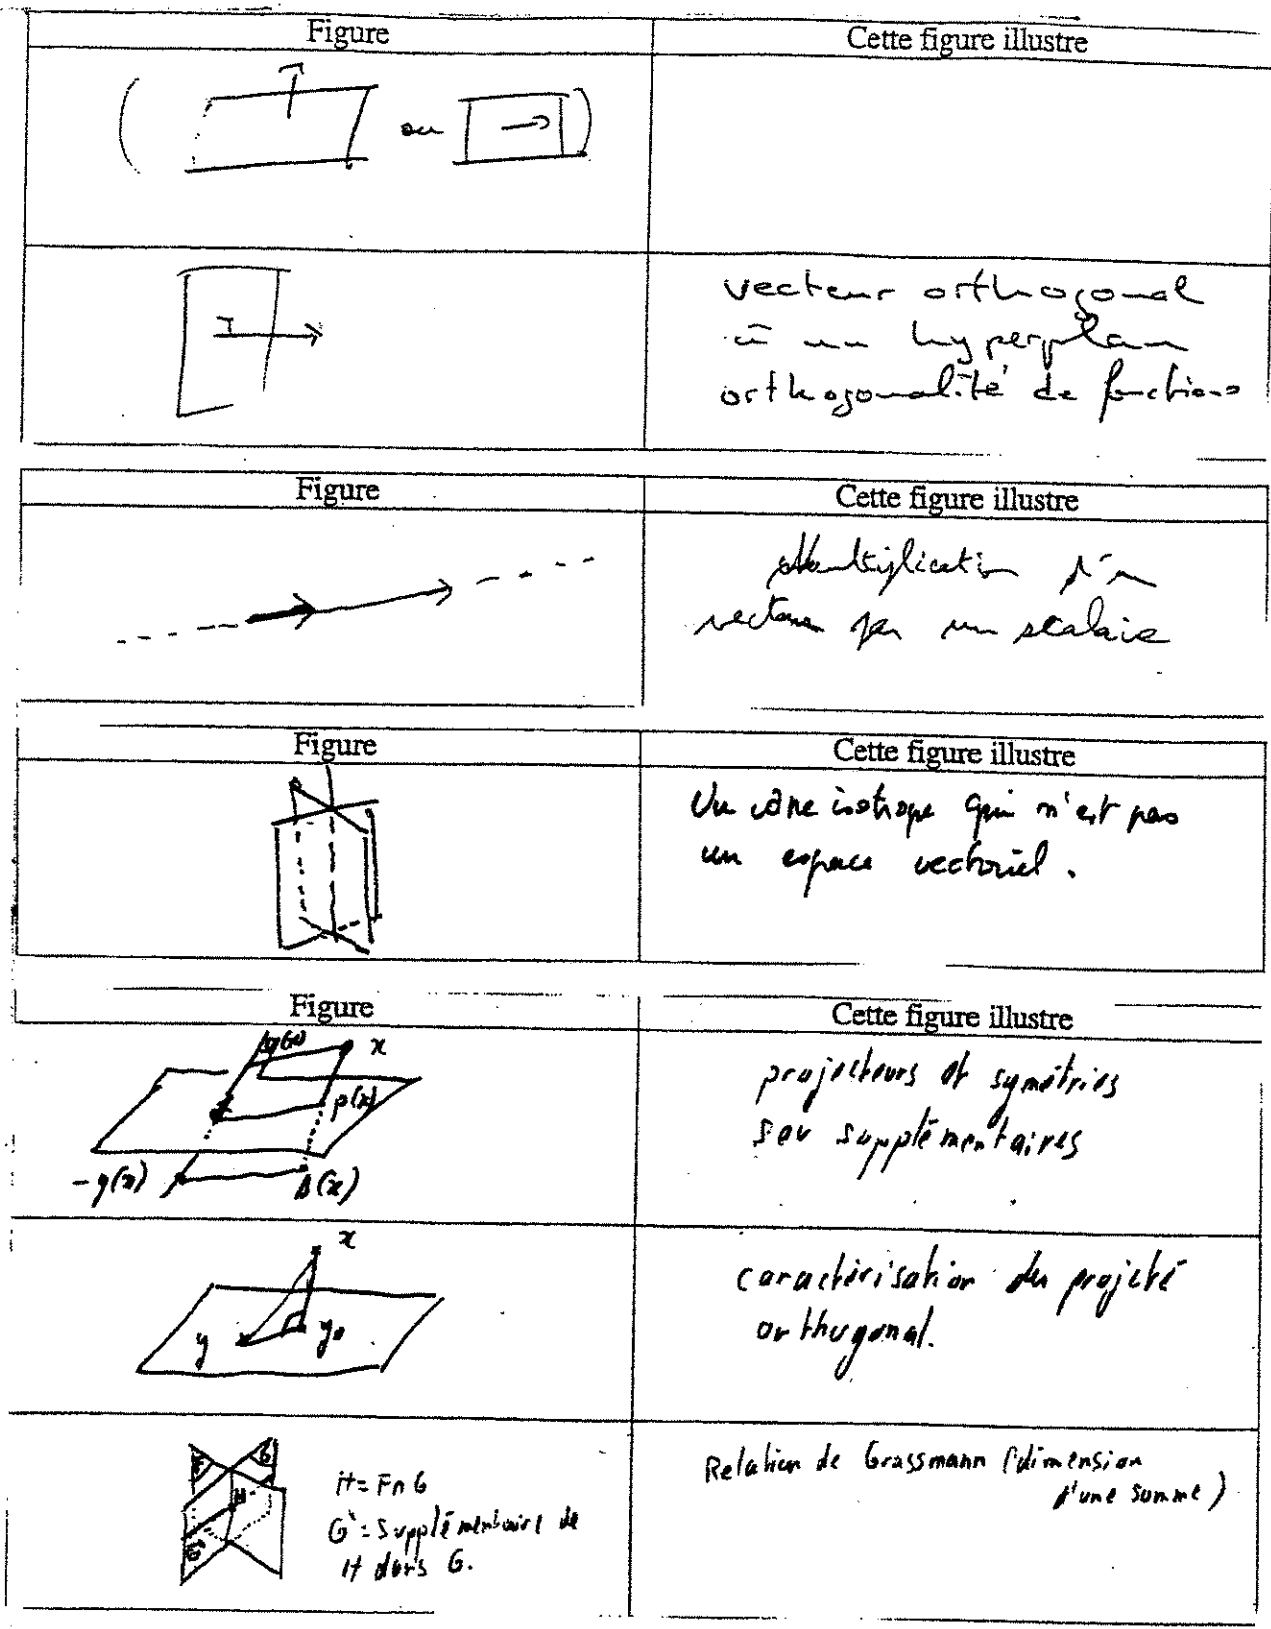 Figure
Cette figure illustre
ou
vecteur orthogonal
à un hyperplan
orthogonalité de fonctions
Figure
Cette figure illustre
Multiplication d'un
vecteur par un scalaire
Figure
Cette figure illustre
Un cône isotrope qui n'est pas
un espace vectoriel.
Figure
Cette figure illustre
q(x)
x
p(x)
-q(x)
s(x)
projecteurs et symétries
sur supplémentaires
x
y
y₀
caractérisation du projeté
orthogonal.
F
G
H
G'
H = F∩G
G' = Supplémentaire de
H dans G.
Relation de Grassmann (dimension
d'une somme)